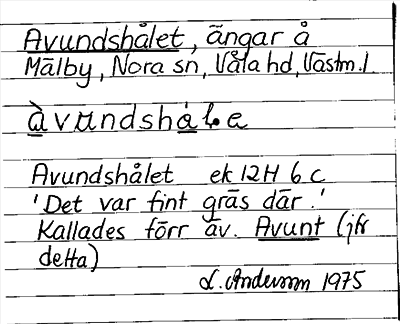 Avundshålet, ängar å
Mälby, Nora sn, Våla hd, Västm.l.
àvundshålea
Avundshålet ek 12H 6 c
'Det var fint gräs där.'
Kallades förr av. Avunt (jfr
detta)
L. Andersson 1975